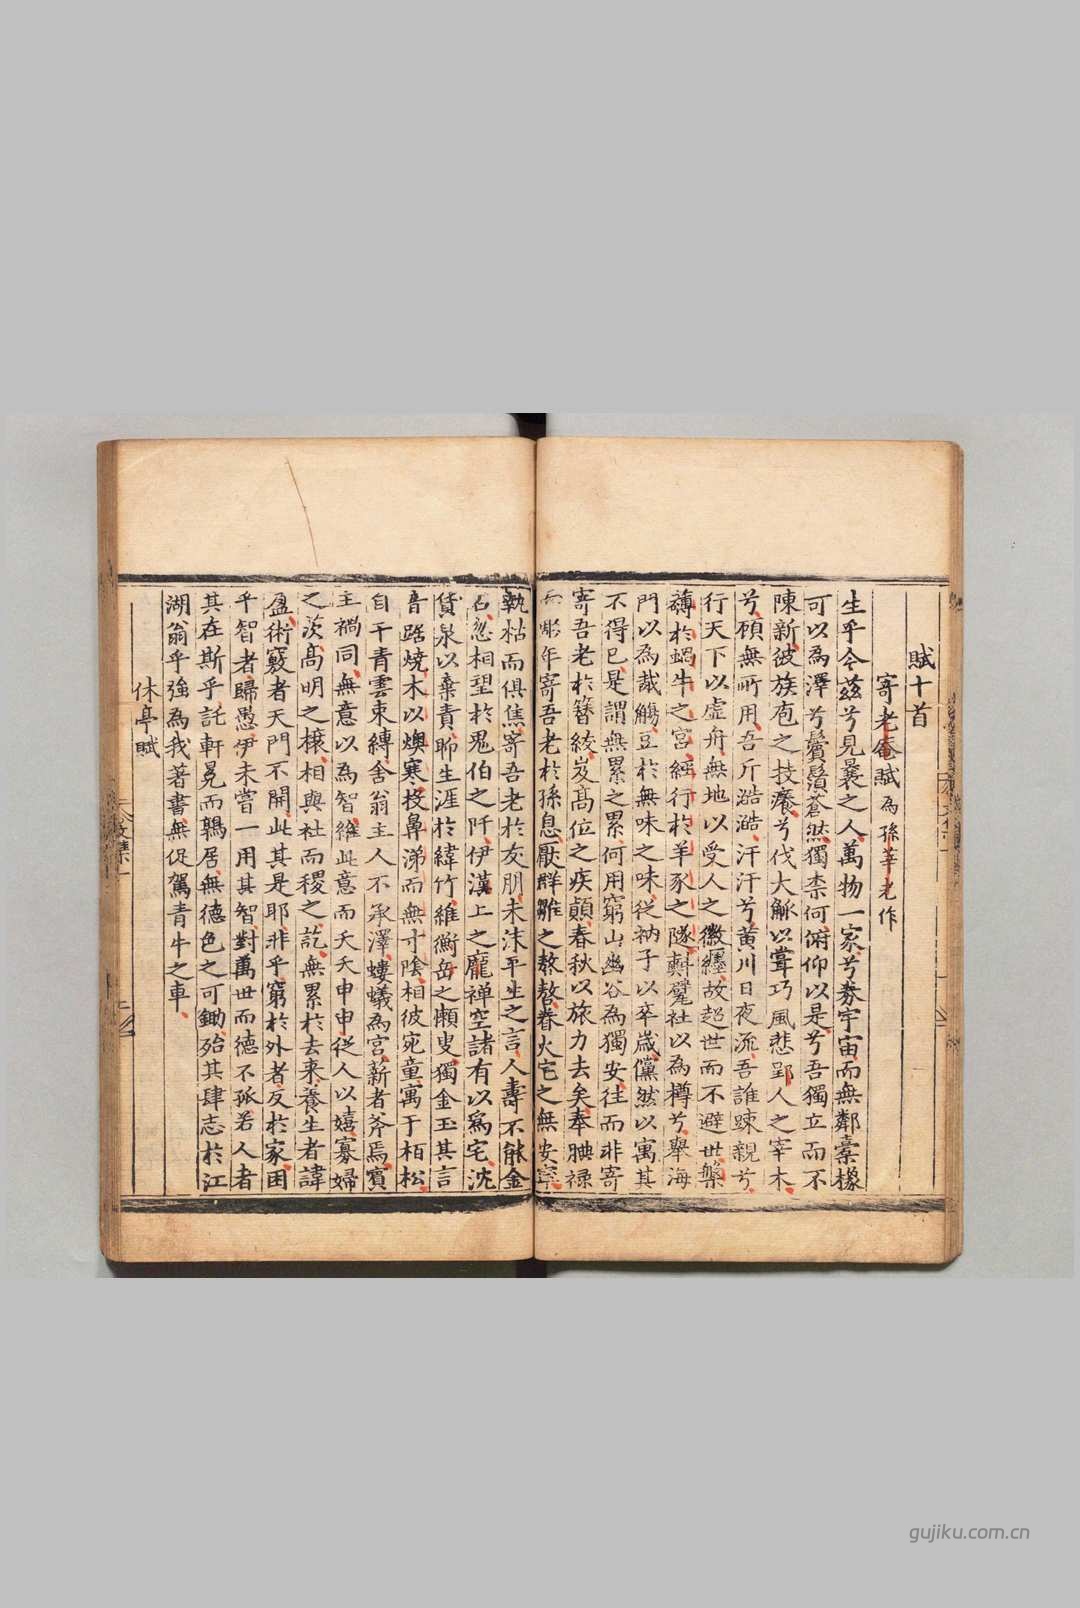 賦十首
寄老庵賦為孫莘老作
生乎今茲兮見曩之人萬物一家兮劵宇宙而無鄰橐椽
可以為澤兮鬢鬚蒼然獨柰何俯仰以是兮吾獨立而不
陳新彼族庖之技癢兮伐大觚以嘗巧風悲郢人之宰木
兮頋無所用吾斤澔澔汗汗兮黄川日夜流吾誰踈親兮
行天下以虚舟無地以受人之徽纆故超世而不避世槃
礴於蝸牛之宫經行於羊豕之隧斸甓社以為樽兮舉海
門以為胾觴豆於無味之味從衲子以卒歲儻然以寓其
不得已是謂無累之累何用窮山幽谷為獨安往而非寄
寄吾老於簪綾岌髙位之疾顛春秋以旅力去矣奉腆禄
年寄吾老於孫息厭群雛之嗷嗷眷火宅之無安寧
執枯而俱焦寄吾老於友朋未沫平生之言人壽不䏻金
石忽相望於鬼伯之阡伊漢上之龐禅空諸有以為宅沈
貨泉以棄責聊生涯於緯竹維衡岳之懶叟獨金玉其言
音踞燒木以燠寒校鼻涕而無寸陰相彼宛童寓于栢松
自干青雲束縛舍翁主人不承澤螻蟻為宫薪者斧焉賔
主禍同無意以為智維此意而夭夭申申從人以嬉寡婦
之茨高明之榱相與社而稷之訖無累於去来養生者諱
盈術竅者天門不開此其是耶非乎窮於外者反於家困
乎智者歸愚伊未嘗一用其智對萬世而德不孤若人者
其在斯乎託軒冕而鶉居無德色之可鋤殆其肆志於江
湖翁乎強為我著書無促駕青牛之車
休亭賦
gujiku.com.cn